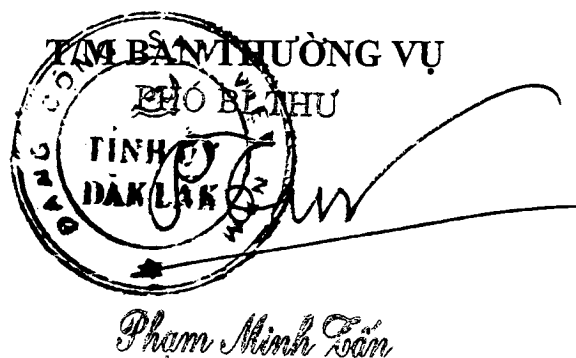 T/M BAN THƯỜNG VỤ
PHÓ BÍ THƯ
ĐẢNG CỘNG SẢN VIỆT NAM
TỈNH ỦY
ĐĂK LĂK
Phạm Minh Tấn